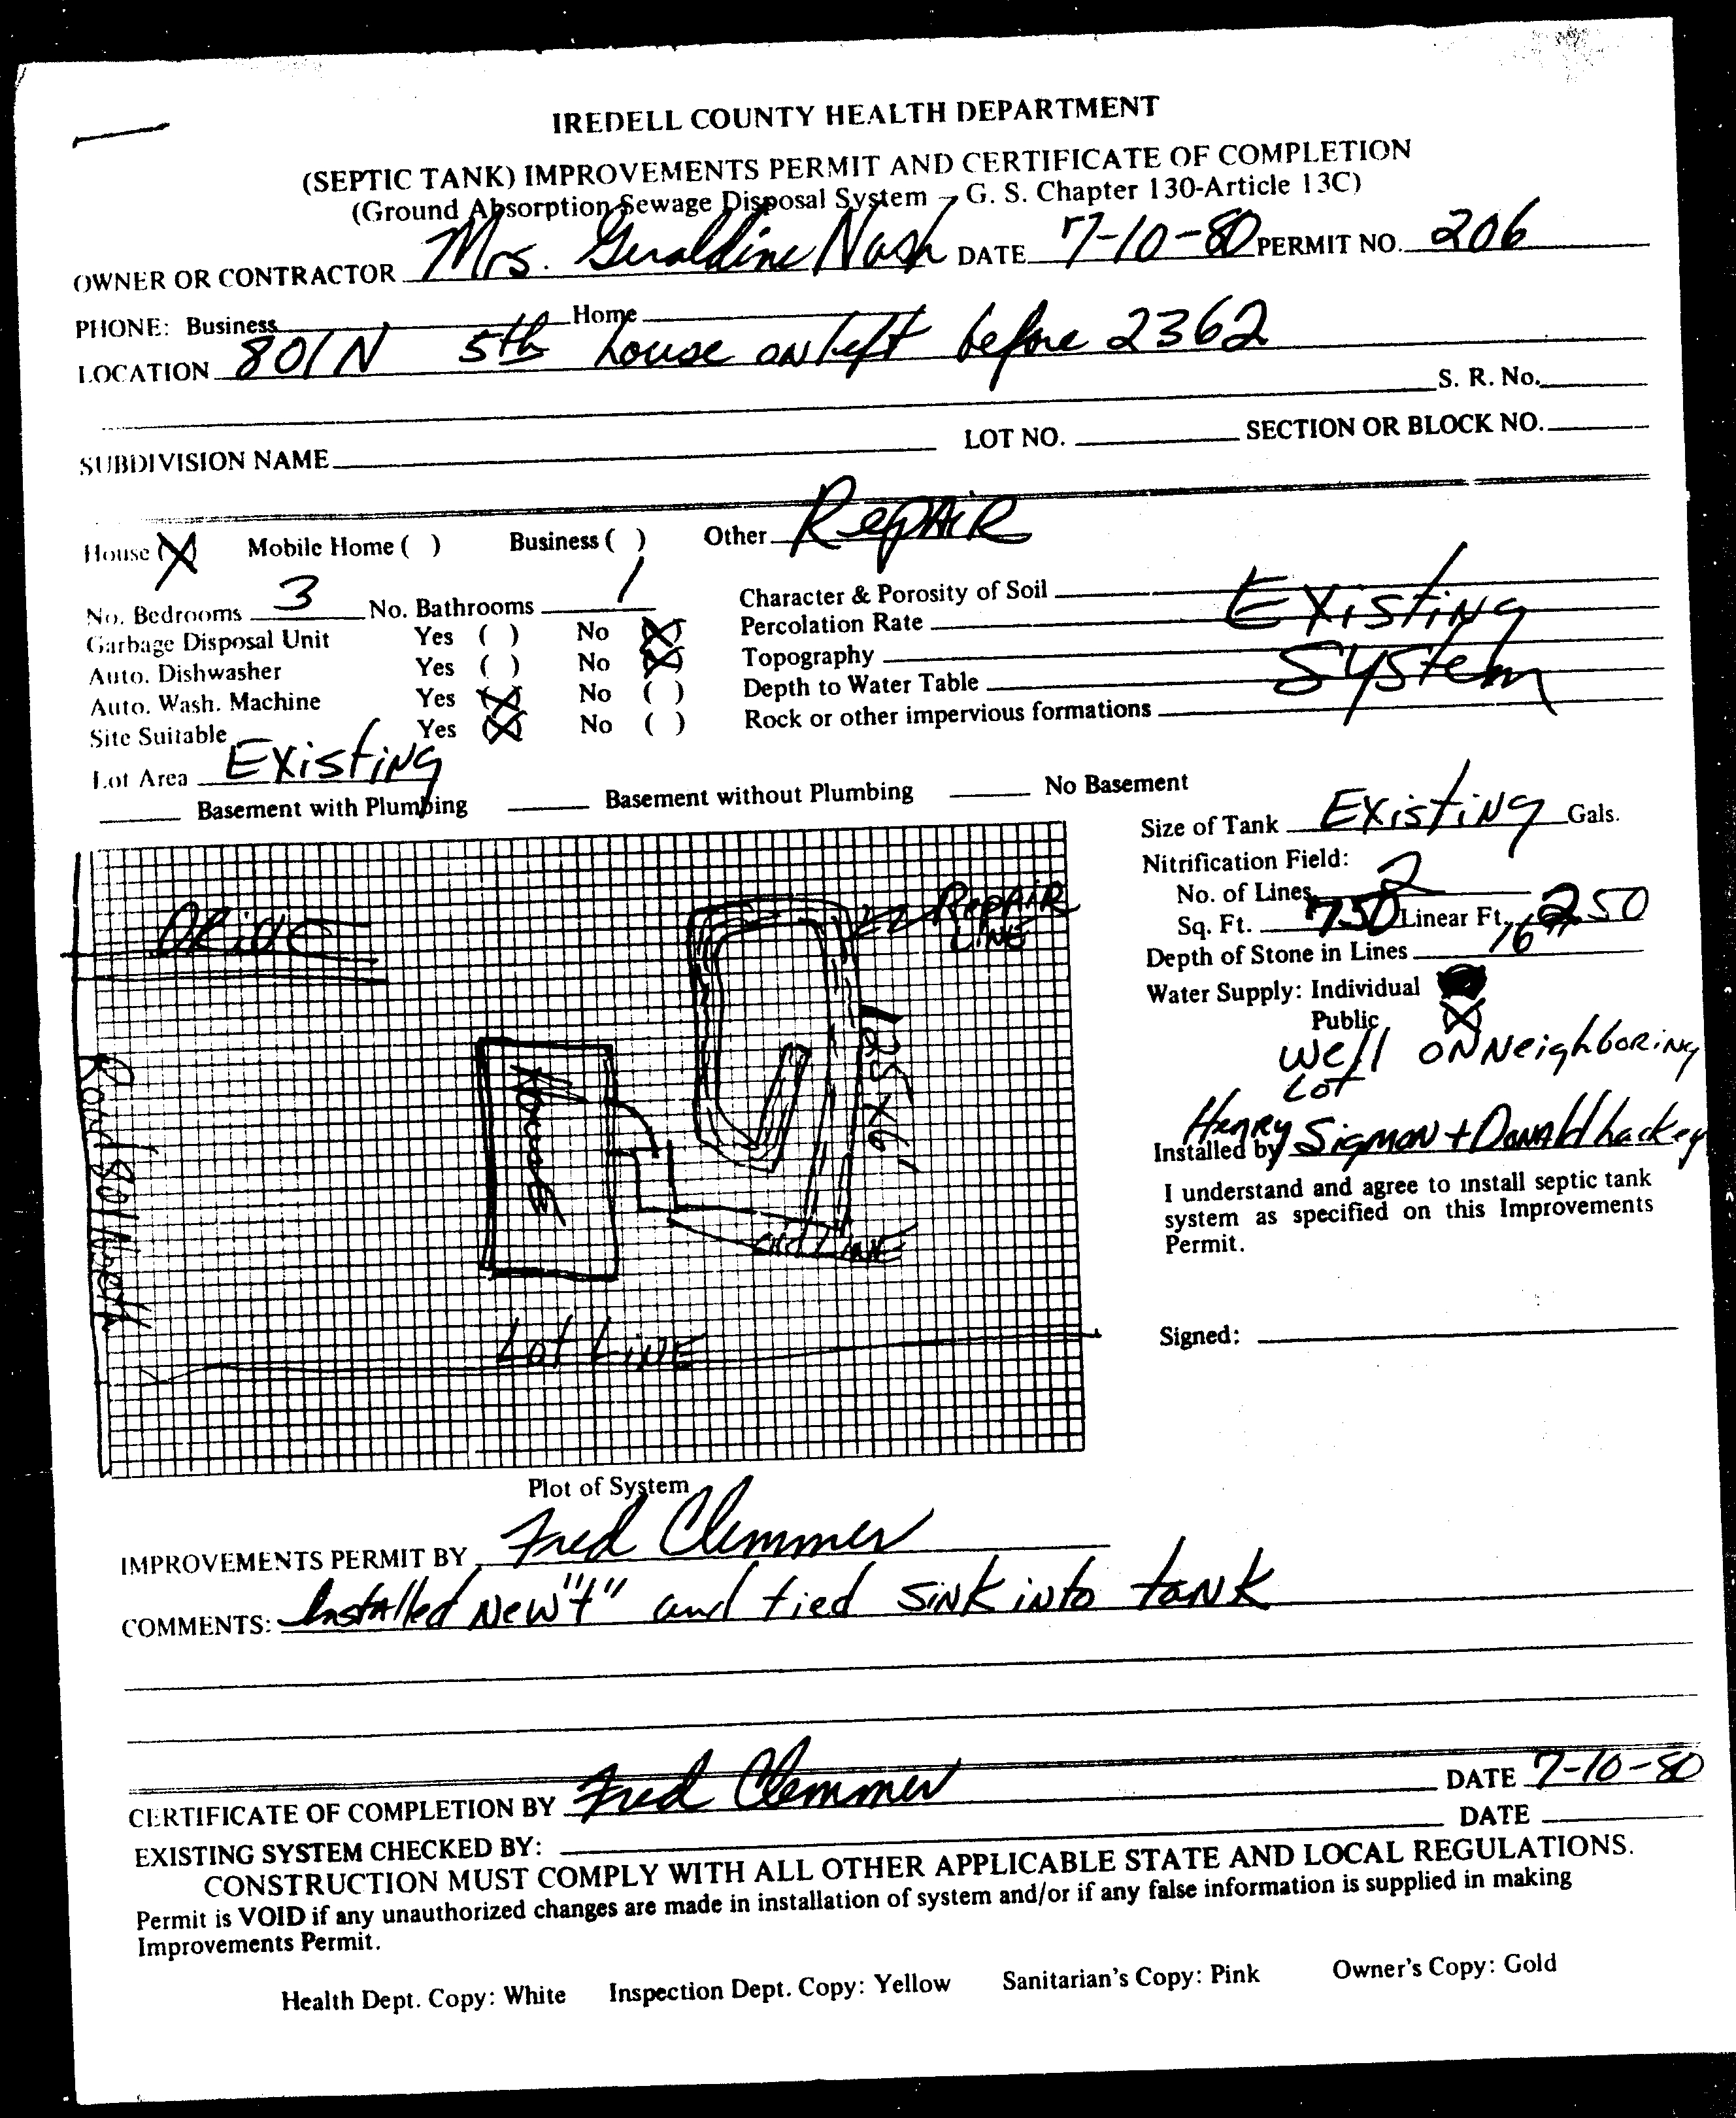 IREDELL COUNTY HEALTH DEPARTMENT
(SEPTIC TANK) IMPROVEMENTS PERMIT AND CERTIFICATE OF COMPLETION
(Ground Absorption Sewage Disposal System – G. S. Chapter 130-Article 13C)
OWNER OR CONTRACTOR Mrs. Geraldine Nash DATE 7-10-80 PERMIT NO. 206
PHONE: Business Home
LOCATION 801 N 5th house on left before 2362
S. R. No.
SUBDIVISION NAME LOT NO. SECTION OR BLOCK NO.
House (X) Mobile Home ( ) Business ( ) Other Repair
No. Bedrooms 3 No. Bathrooms 1 Character & Porosity of Soil Existing System
Garbage Disposal Unit Yes ( ) No (X) Percolation Rate
Auto. Dishwasher Yes ( ) No (X) Topography
Auto. Wash. Machine Yes (X) No ( ) Depth to Water Table
Site Suitable Yes (X) No ( ) Rock or other impervious formations
Lot Area Existing
Basement with Plumbing Basement without Plumbing No Basement
Size of Tank Existing Gals.
Nitrification Field:
No. of Lines 2
Sq. Ft. 750 Linear Ft. 250
Depth of Stone in Lines 16"
Water Supply: Individual
Public (X)
Well on Neighboring
Lot
Installed by Henry Sigmon + Donald Lackey
I understand and agree to install septic tank
system as specified on this Improvements
Permit.
Signed:
Drive
Repair
Line
125 X 6'
House
Road 801 North
Old Line
Lot Line
Plot of System
IMPROVEMENTS PERMIT BY Fred Clemmer
COMMENTS: Installed New "t" and tied sink into tank
CERTIFICATE OF COMPLETION BY Fred Clemmer DATE 7-10-80
EXISTING SYSTEM CHECKED BY: DATE
CONSTRUCTION MUST COMPLY WITH ALL OTHER APPLICABLE STATE AND LOCAL REGULATIONS.
Permit is VOID if any unauthorized changes are made in installation of system and/or if any false information is supplied in making
Improvements Permit.
Health Dept. Copy: White Inspection Dept. Copy: Yellow Sanitarian's Copy: Pink Owner's Copy: Gold